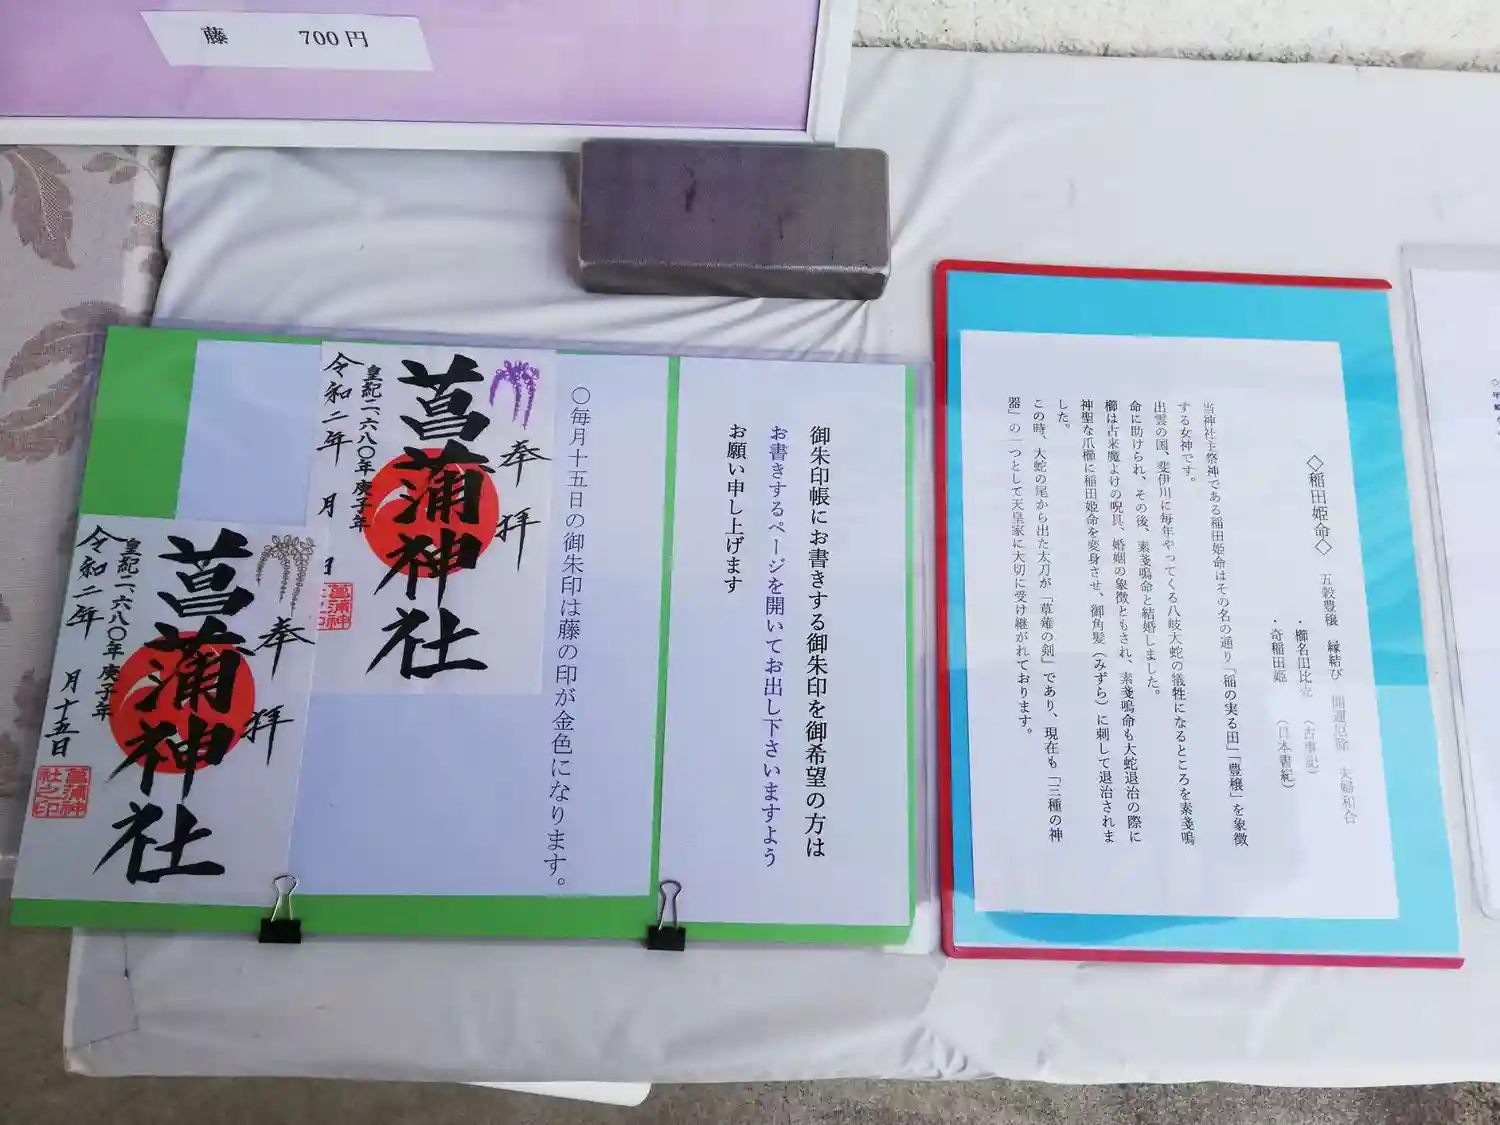 藤 700円
奉拝
菖蒲神社
皇紀二、六八〇年 庚子年
令和二年 月 日
奉拝
菖蒲神社
皇紀二、六八〇年 庚子年
令和二年 月十五日
菖蒲神
社之印
〇毎月十五日の御朱印は藤の印が金色になります。
御朱印帳にお書きする御朱印を御希望の方は
お書きするページを開いてお出し下さいますよう
お願い申し上げます
◇稲田姫命◇ 五穀豊穣 縁結び 開運厄除 夫婦和合
・櫛名田比売 (古事記)
・奇稲田姫 (日本書紀)
当神社主祭神である稲田姫命はその名の通り「稲の実る田」「豊穣」を象徴
する女神です。
出雲の国、斐伊川に毎年やってくる八岐大蛇の犠牲になるところを素戔嗚
命に助けられ、その後、素戔嗚命と結婚しました。
櫛は古来魔よけの呪具、婚姻の象徴ともされ、素戔嗚命も大蛇退治の際に
神聖な爪櫛に稲田姫命を変身させ、御角髪(みずら)に刺して退治されま
した。
この時、大蛇の尾から出た太刀が「草薙の剣」であり、現在も「三種の神
器」の一つとして天皇家に大切に受け継がれております。